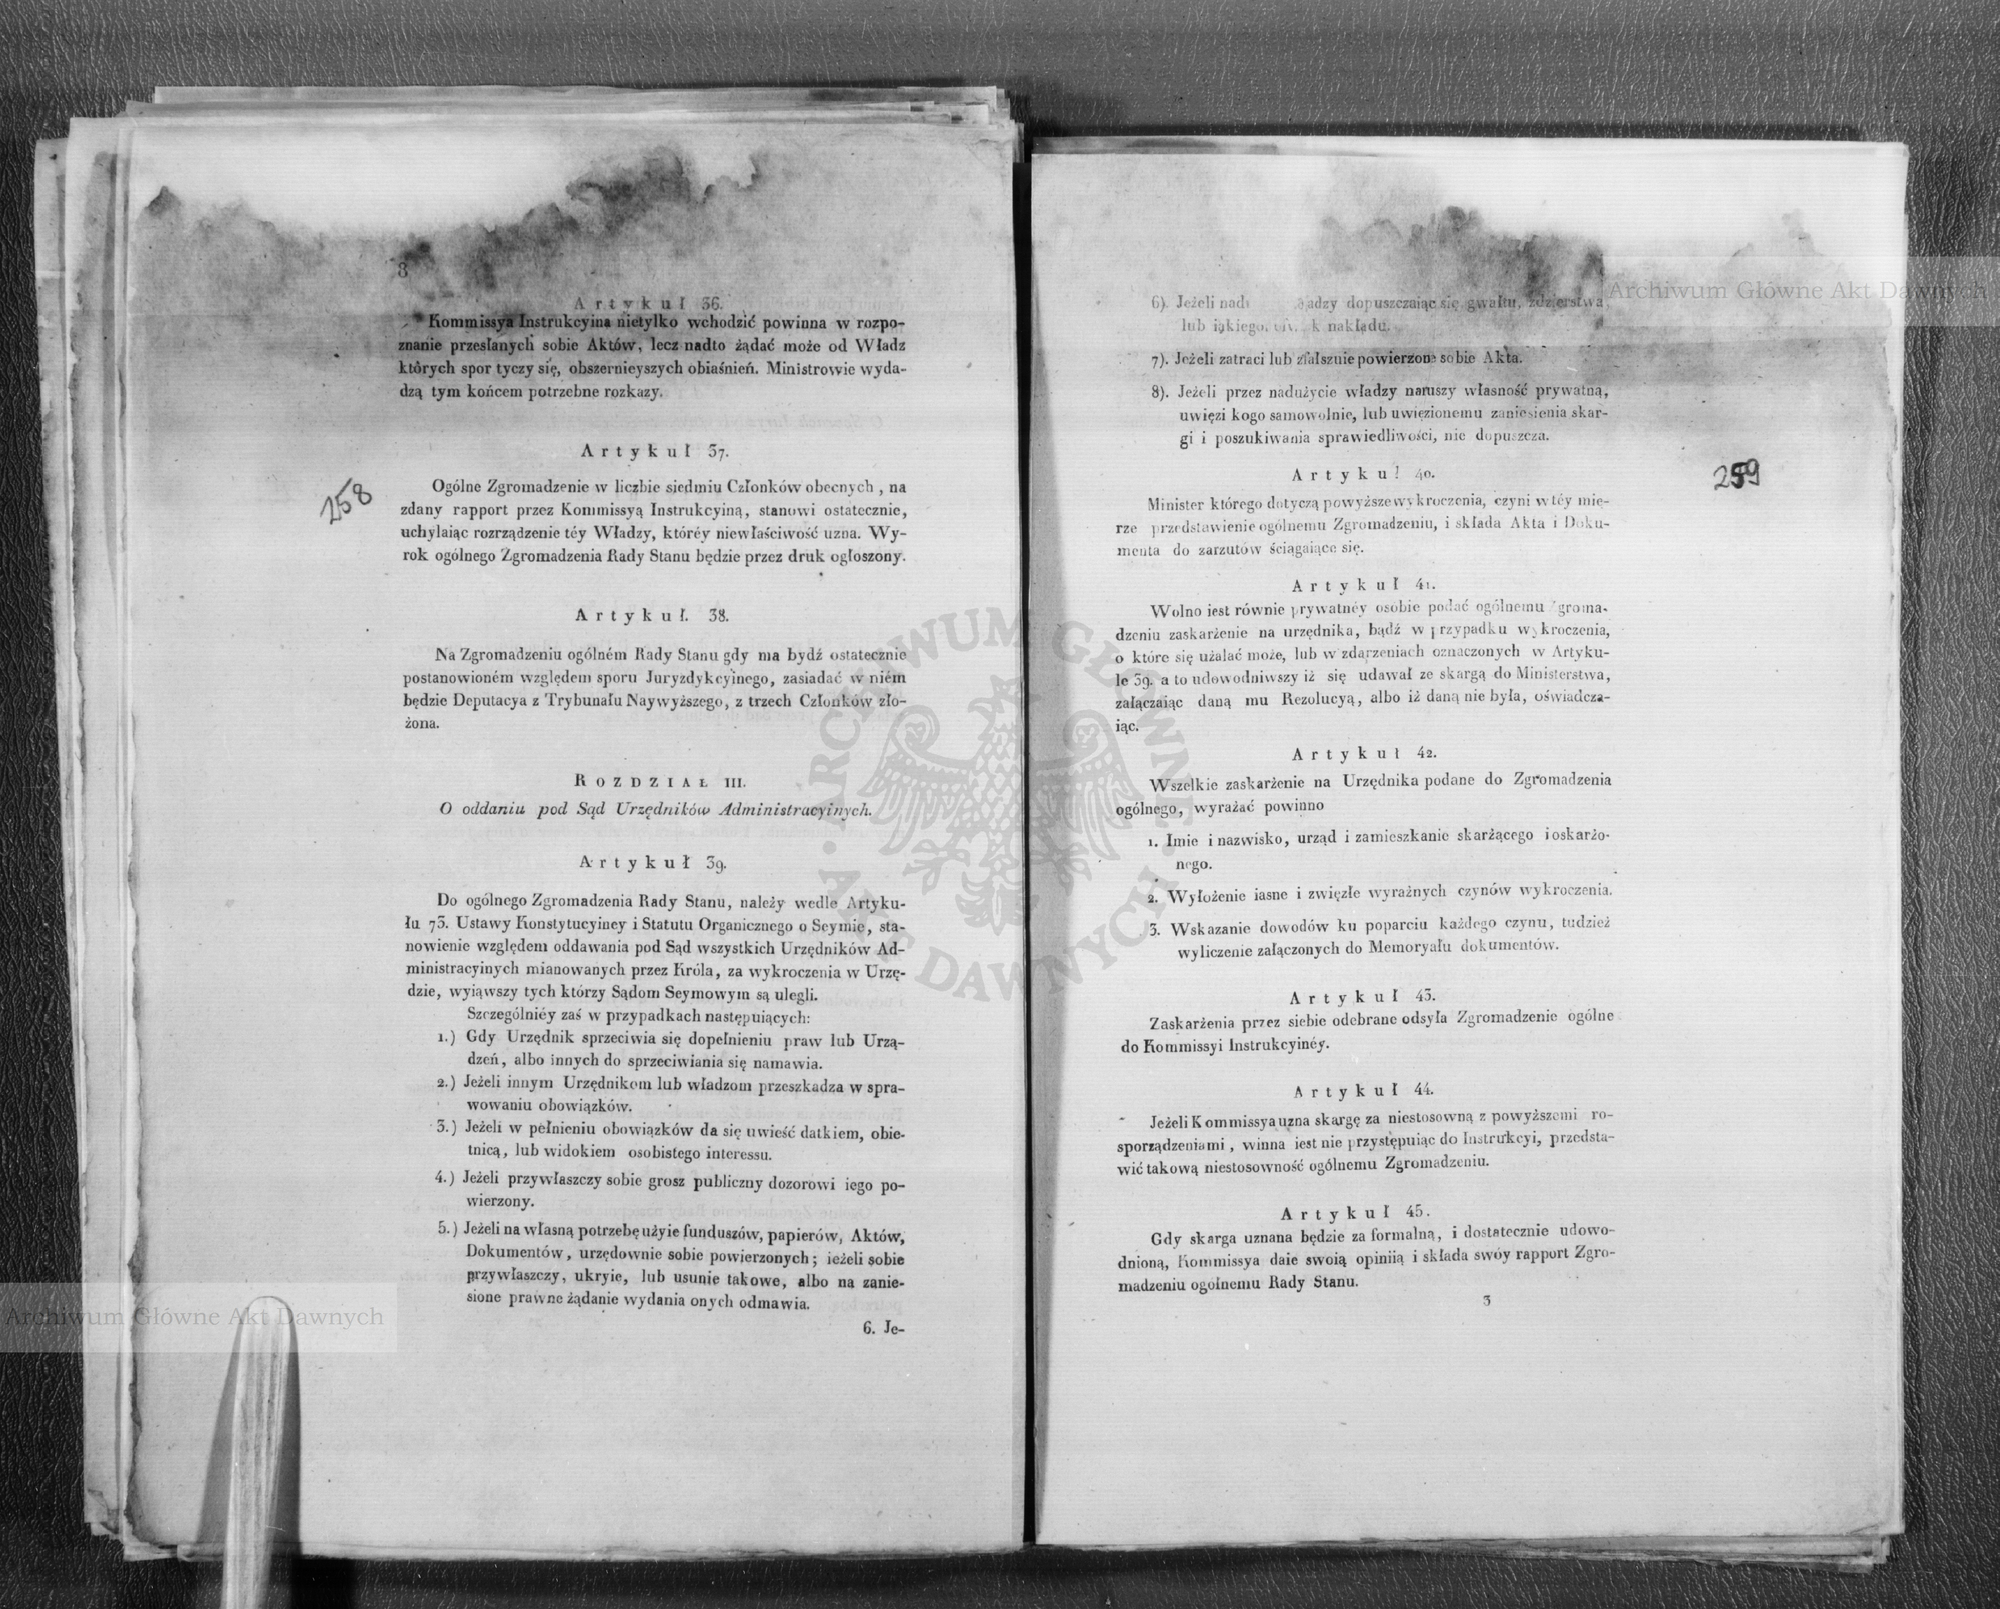 8
Artykuł 36.
Kommissya Instrukcyina nietylko wchodzić powinna w rozpo-
znanie przesłanych sobie Aktów, lecz nadto żądać może od Władz
których spor tyczy się, obszernieyszych obiaśnień. Ministrowie wyda-
dzą tym końcem potrzebne rozkazy.
Artykuł 37.
258
Ogólne Zgromadzenie w liczbie siedmiu Członków obecnych, na
zdany rapport przez Kommissyą Instrukcyiną, stanowi ostatecznie,
uchylaiąc rozrządzenie téy Władzy, któréy niewłaściwość uzna. Wy-
rok ogólnego Zgromadzenia Rady Stanu będzie przez druk ogłoszony.
Artykuł. 38.
Na Zgromadzeniu ogólném Rady Stanu gdy ma bydź ostatecznie
postanowioném względem sporu Juryzdykcyinego, zasiadać w niém
będzie Deputacya z Trybunału Naywyższego, z trzech Członków zło-
żona.
ROZDZIAŁ III.
O oddaniu pod Sąd Urzędników Administracyinych.
Artykuł 39.
Do ogólnego Zgromadzenia Rady Stanu, należy wedle Artyku-
łu 73. Ustawy Konstytucyiney i Statutu Organicznego o Seymie, sta-
nowienie względem oddawania pod Sąd wszystkich Urzędników Ad-
ministracyinych mianowanych przez Króla, za wykroczenia w Urzę-
dzie, wyiąwszy tych którzy Sądom Seymowym są ulegli.
Szczególniéy zaś w przypadkach następuiących:
1.) Gdy Urzędnik sprzeciwia się dopełnieniu praw lub Urzą-
dzeń, albo innych do sprzeciwiania się namawia.
2.) Jeżeli innym Urzędnikom lub władzom przeszkadza w spra-
wowaniu obowiązków.
3.) Jeżeli w pełnieniu obowiązków da się uwieść datkiem, obie-
tnicą, lub widokiem osobistego interessu.
4.) Jeżeli przywłaszczy sobie grosz publiczny dozorowi iego po-
wierzony.
5.) Jeżeli na własną potrzebę użyie funduszów, papierów, Aktów,
Dokumentów, urzędownie sobie powierzonych; ieżeli sobie
przywłaszczy, ukryie, lub usunie takowe, albo na zanie-
sione prawne żądanie wydania onych odmawia.
6. Je-
6). Jeżeli dopuszczaiąc się gwałtu, zdzierstwa,
lub iąkiego nakładu.
7). Jeżeli zatraci lub zfałszuie powierzone sobie Akta.
8). Jeżeli przez nadużycie władzy naruszy własność prywatną,
uwięzi kogo samowolnie, lub uwięzionemu zaniesienia skar-
gi i poszukiwania sprawiedliwości, nie dopuszcza.
Artykuł 40.
259
Minister którego dotyczą powyższe wykroczenia, czyni w téy mie-
rze przedstawienie ogólnemu Zgromadzeniu, i składa Akta i Doku-
menta do zarzutów ściągaiące się.
Artykuł 41.
Wolno iest równie prywatnéy osobie podać ogólnemu Zgroma-
dzeniu zaskarżenie na urzędnika, bądź w przypadku wykroczenia,
o które się użalać może, lub w zdarzeniach oznaczonych w Artyku-
le 39. a to udowodniwszy iż się udawał ze skargą do Ministerstwa,
załączaiąc daną mu Rezolucyą, albo iż daną nie była, oświadcza-
iąc.
Artykuł 42.
Wszelkie zaskarżenie na Urzędnika podane do Zgromadzenia
ogólnego, wyrażać powinno
1. Imie i nazwisko, urząd i zamieszkanie skarżącego i oskarżo-
nego.
2. Wyłożenie iasne i zwięzłe wyraźnych czynów wykroczenia.
3. Wskazanie dowodów ku poparciu każdego czynu, tudzież
wyliczenie załączonych do Memoryału dokumentów.
Artykuł 43.
Zaskarżenia przez siebie odebrane odsyła Zgromadzenie ogólne
do Kommissyi Instrukcyinéy.
Artykuł 44.
Jeżeli Kommissya uzna skargę za niestosowną z powyższemi ro-
sporządzeniami, winna iest nie przystępuiąc do Instrukcyi, przedsta-
wić takową niestosowność ogólnemu Zgromadzeniu.
Artykuł 45.
Gdy skarga uznana będzie za formalną, i dostatecznie udowo-
dnioną, Kommissya daie swoią opiniią i składa swóy rapport Zgro-
madzeniu ogólnemu Rady Stanu.
3
Archiwum Główne Akt Dawnych
Archiwum Główne Akt Dawnych
ARCHIWUM GŁÓWNE AKT DAWNYCH